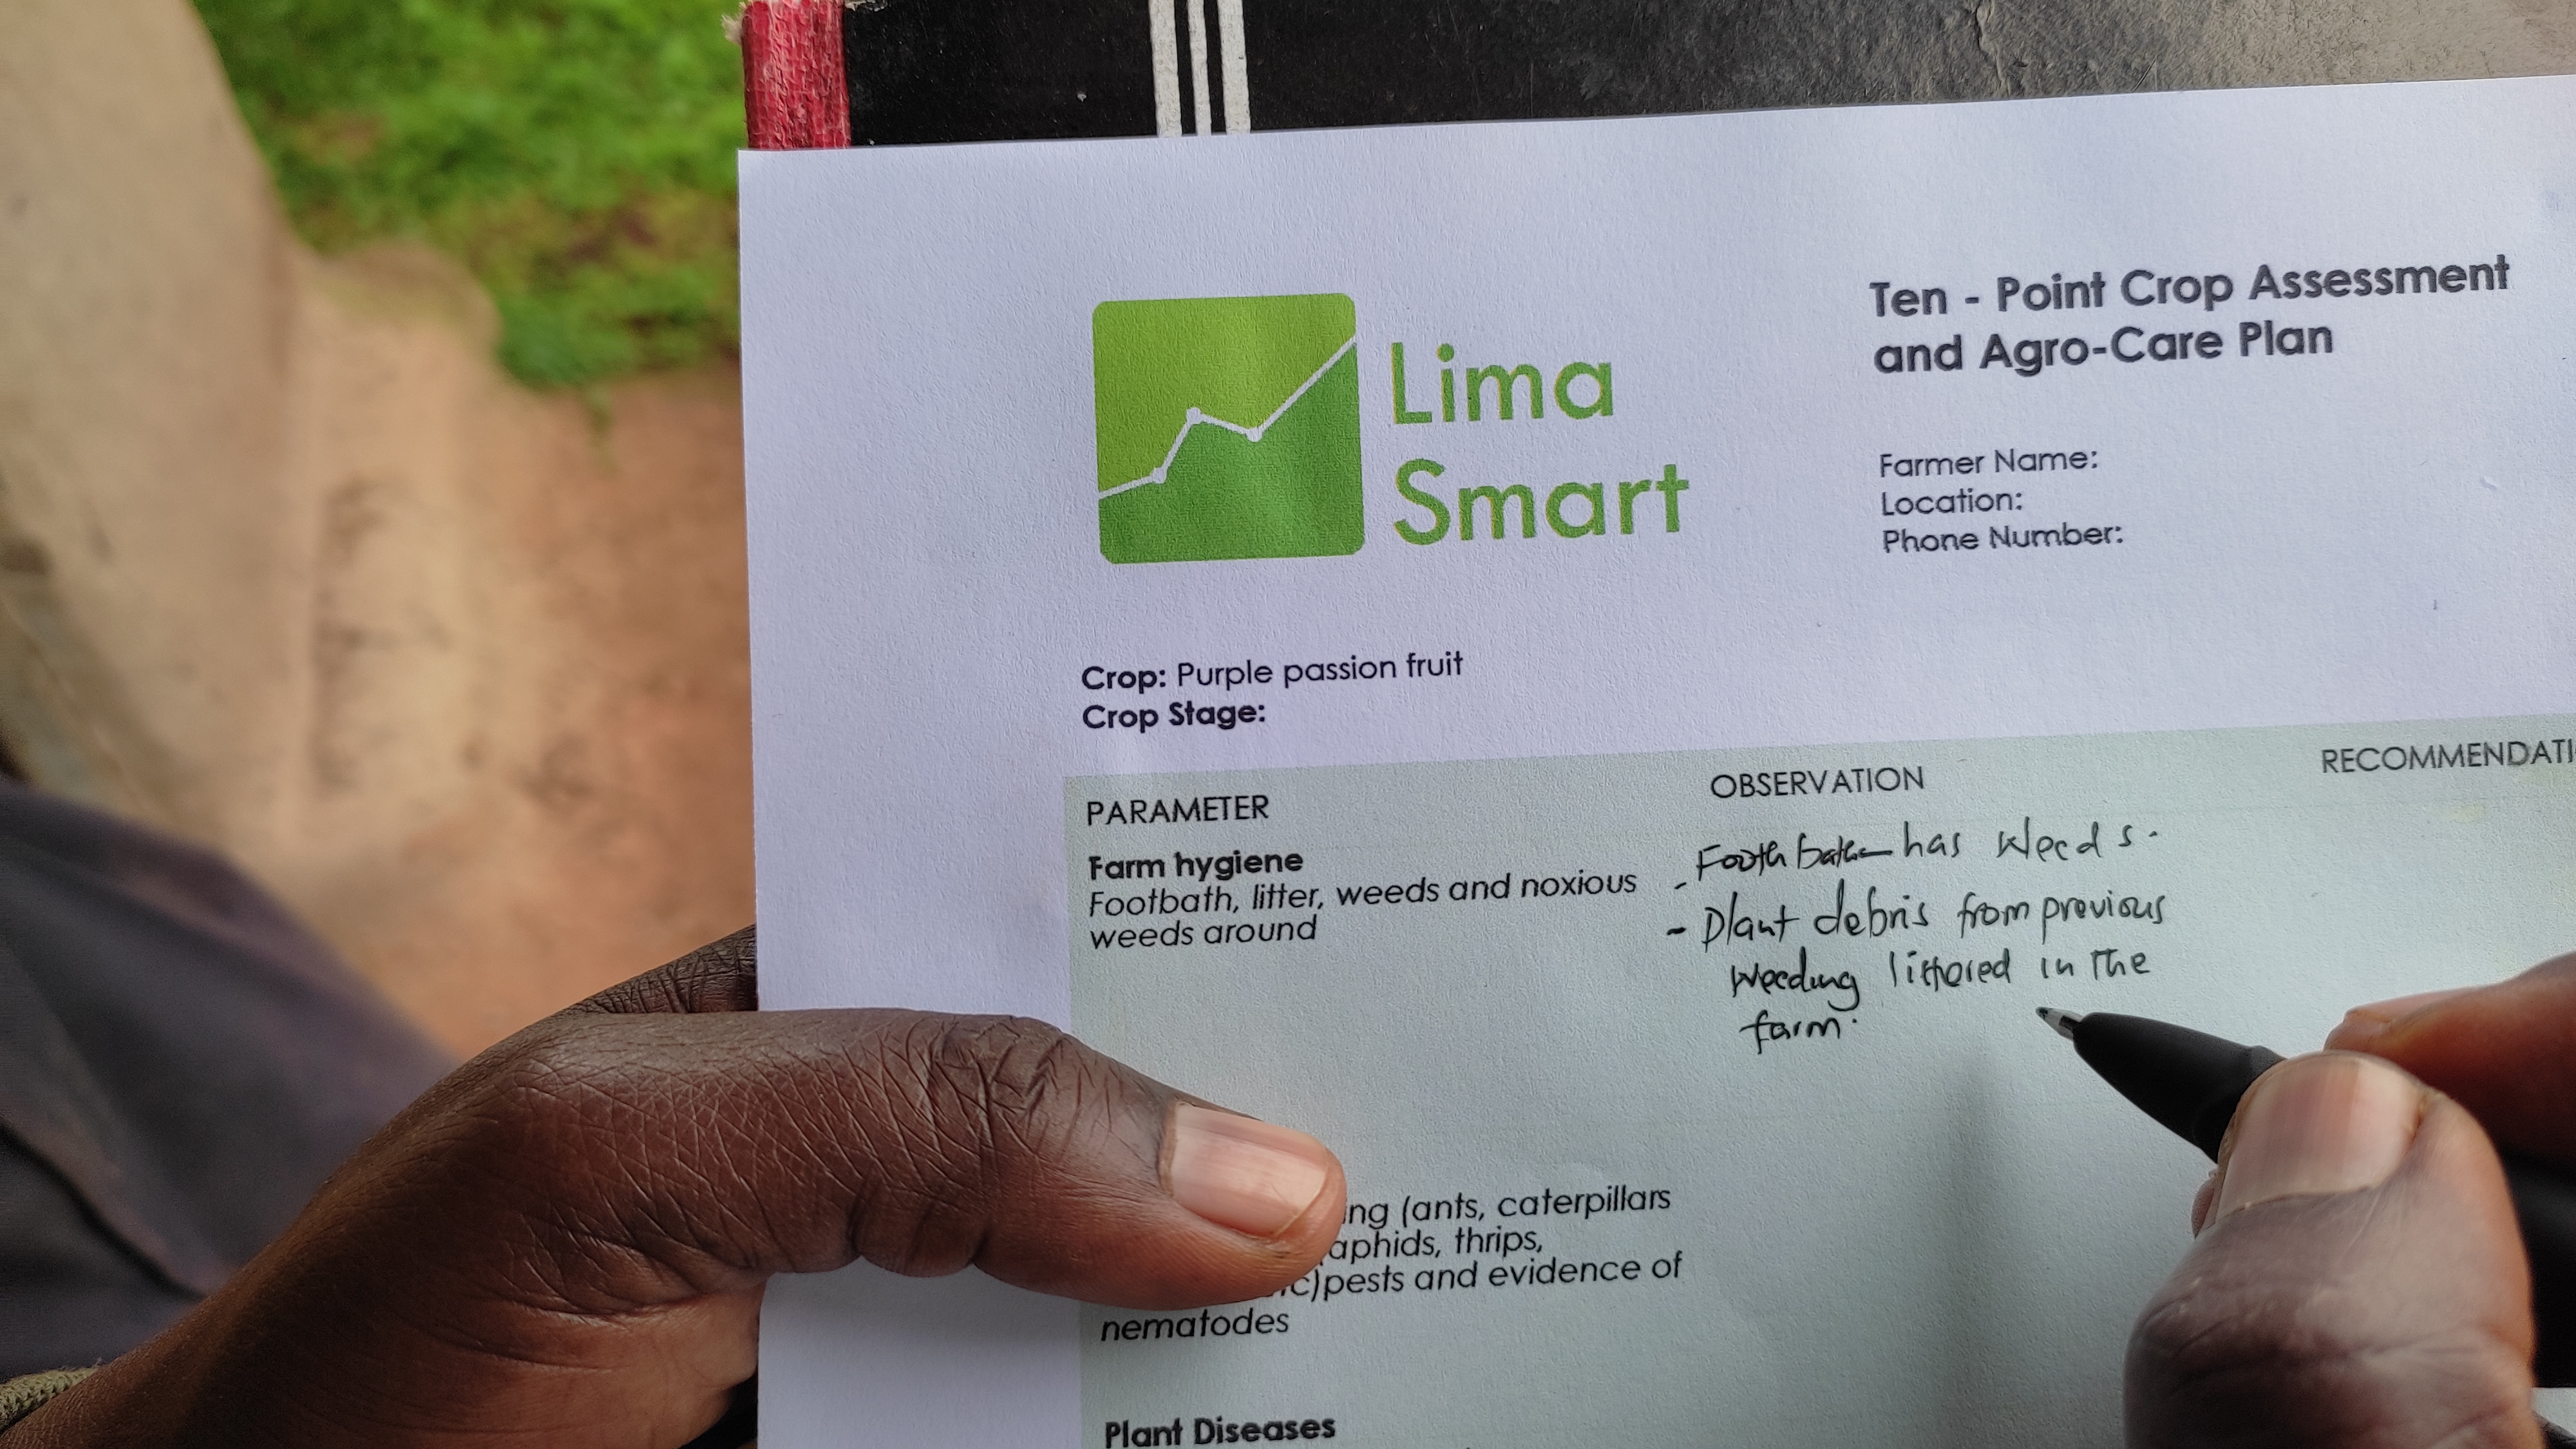 Lima
Smart
Ten - Point Crop Assessment
and Agro-Care Plan
Farmer Name:
Location:
Phone Number:
Crop: Purple passion fruit
Crop Stage:
PARAMETER
OBSERVATION
RECOMMENDATI
Farm hygiene
Footbath, litter, weeds and noxious
weeds around
- has weeds.
- Plant debris from previous
weeding littered in the
farm.
ing (ants, caterpillars
aphids, thrips,
c)pests and evidence of
nematodes
Plant Diseases